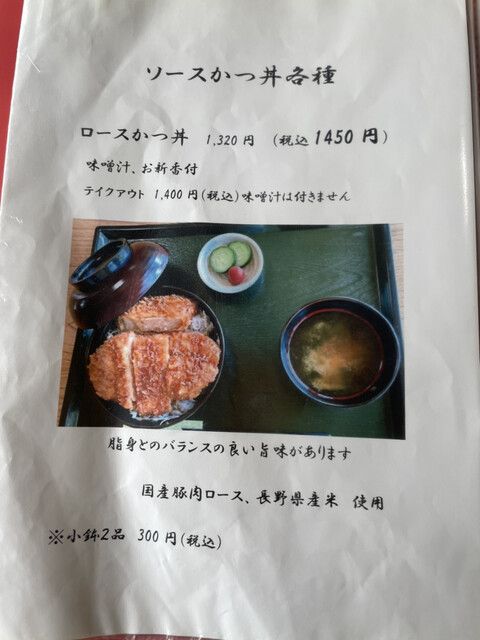 ソースかつ丼各種
ロースかつ丼 1,320円 (税込1450円)
味噌汁、お新香付
テイクアウト 1,400円(税込)味噌汁は付きません
脂身とのバランスの良い旨味があります
国産豚肉ロース、長野県産米 使用
※小鉢2品 300円(税込)